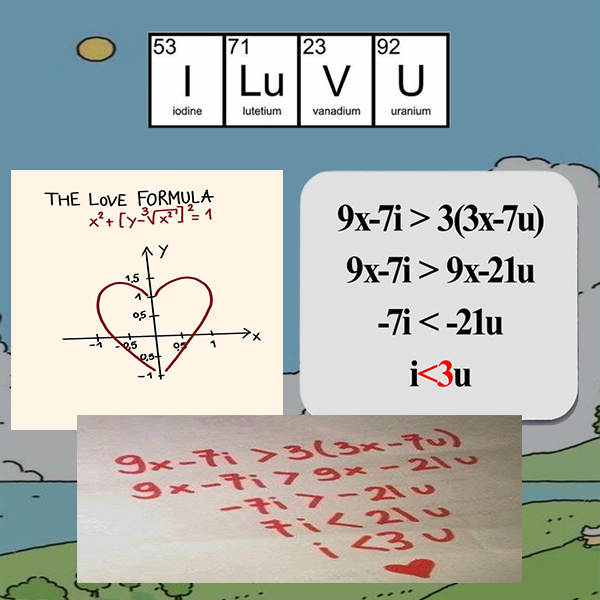 53 71 23 92
I Lu V U
iodine lutetium vanadium uranium
THE LOVE FORMULA
x²+[y-∛x²]²=1
Y
1,5
1
0,5
-1 -0,5 0,5 1 X
0,5
-1
9x-7i > 3(3x-7u)
9x-7i > 9x-21u
-7i < -21u
i<3u
9x-7i >3(3x-7u)
9x-7i > 9x-21u
-7i > -21u
7i <21u
i <3 u